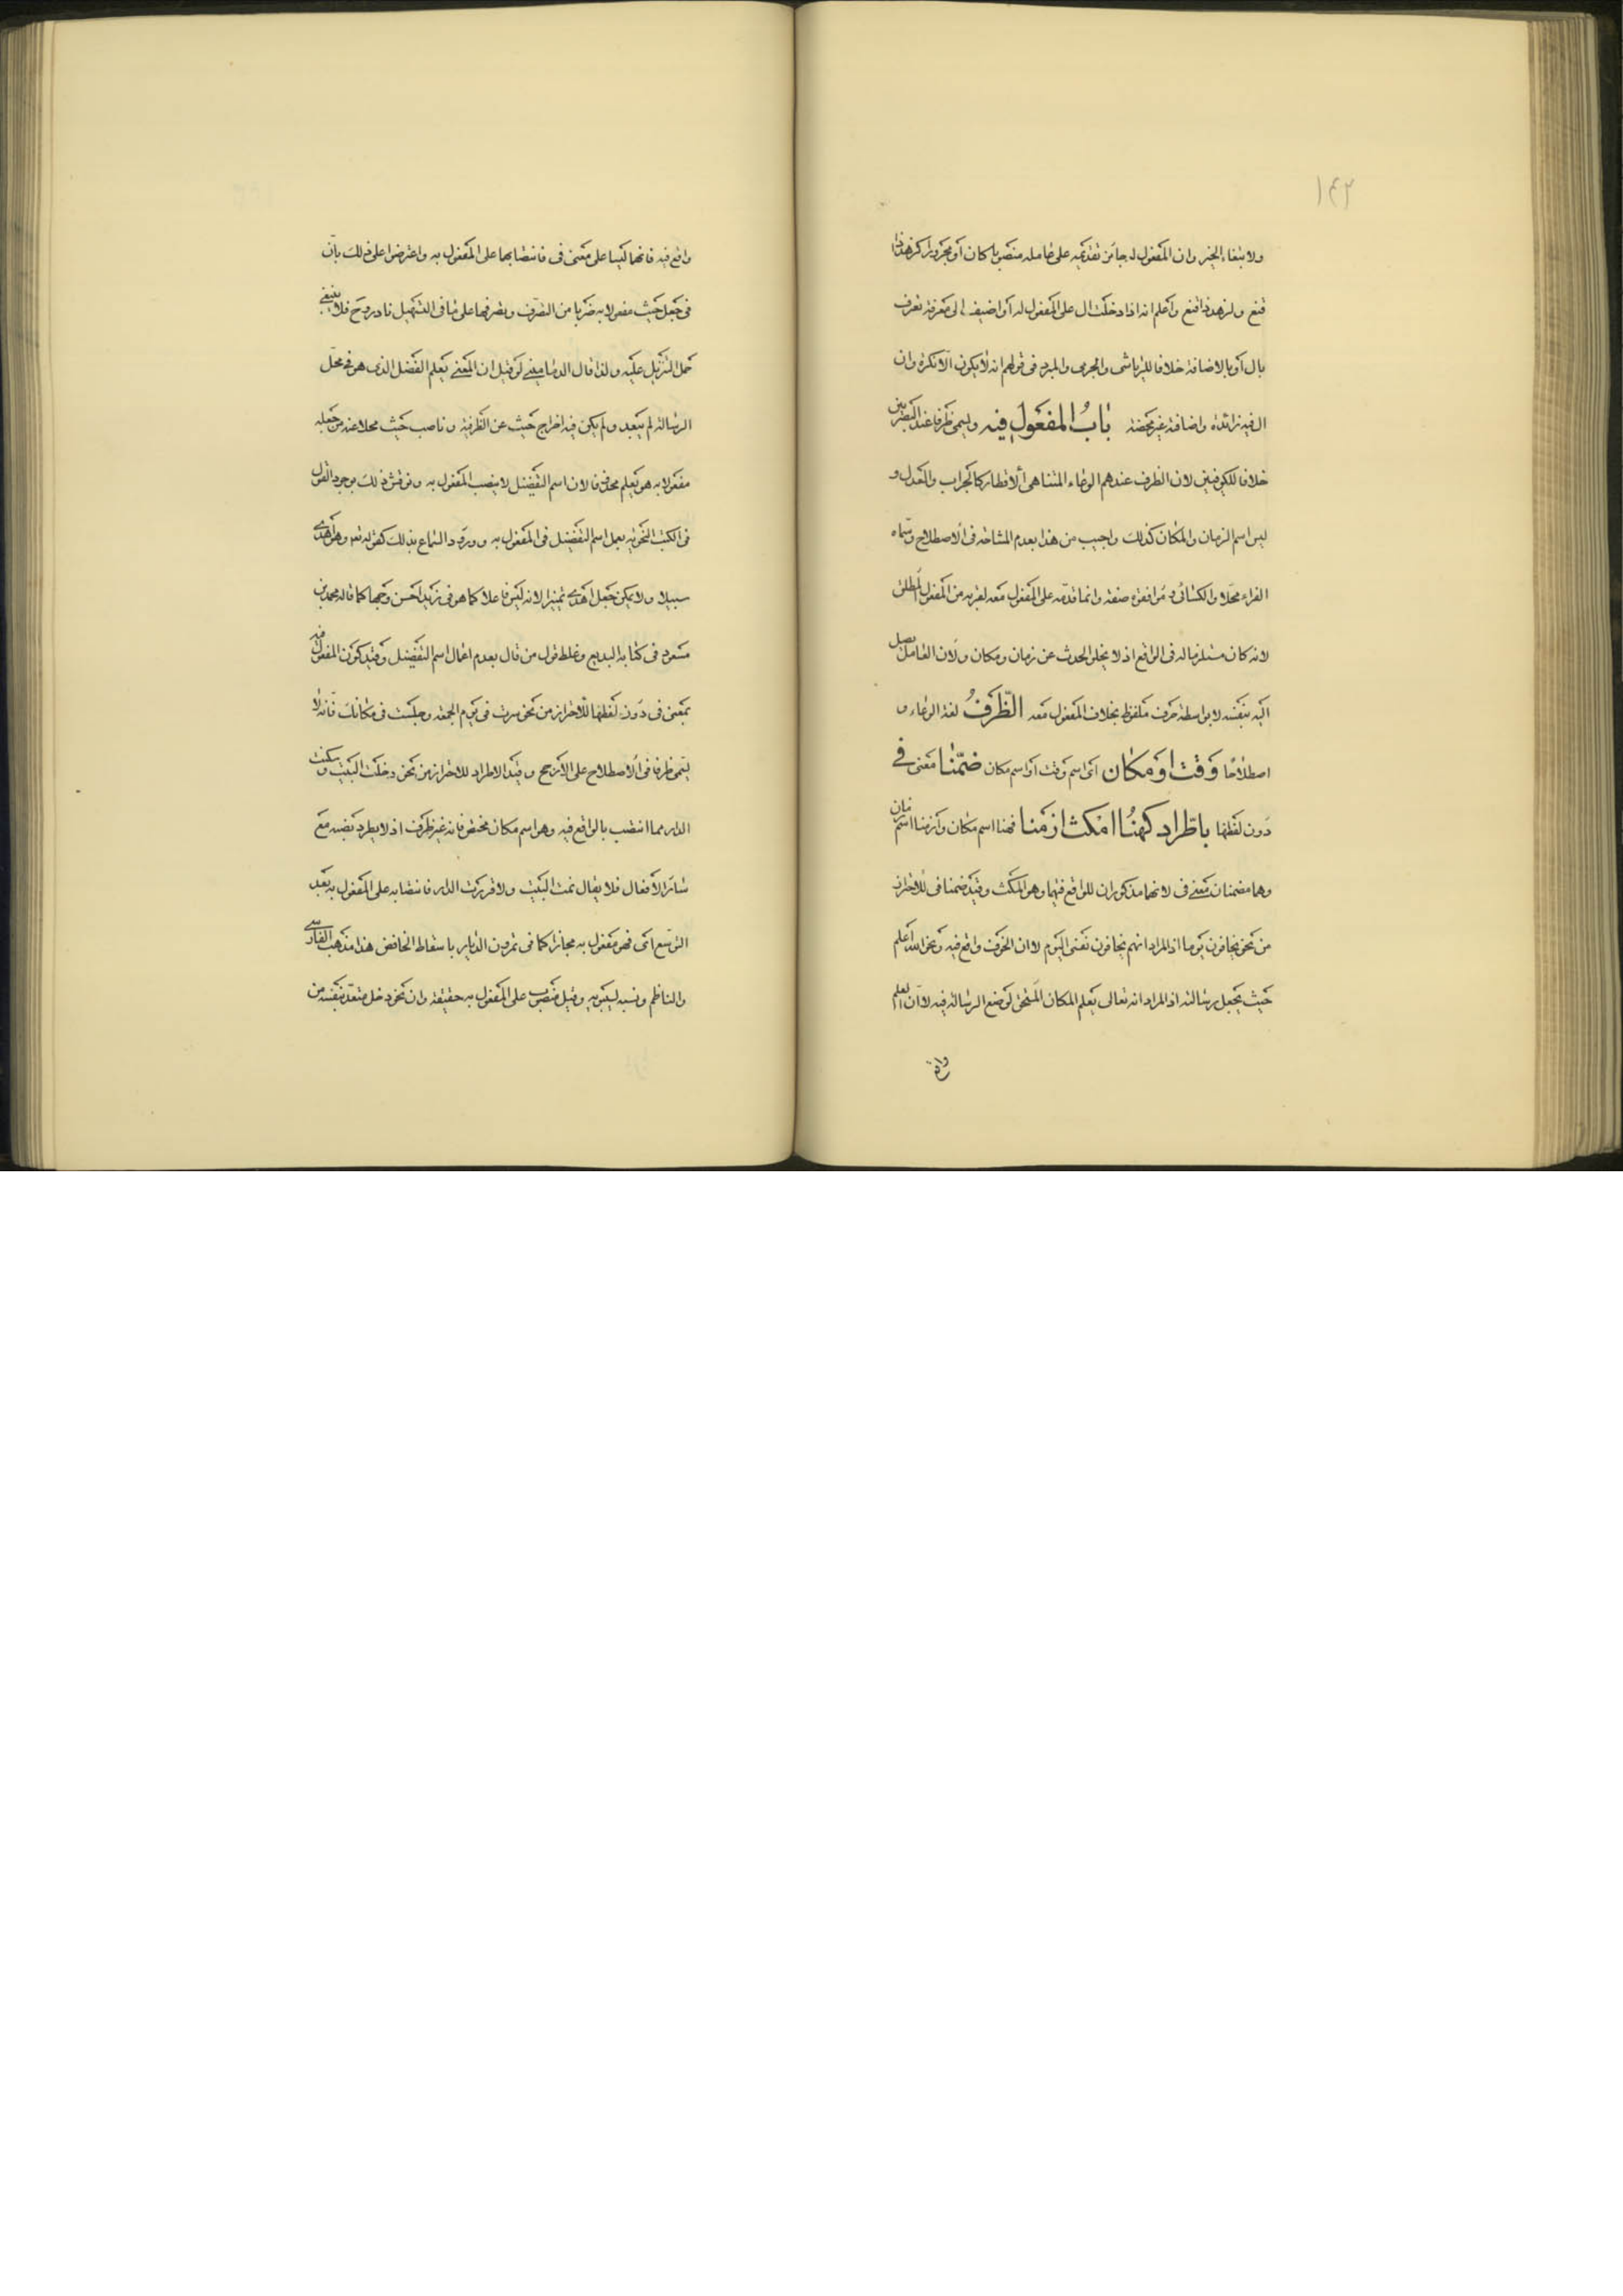 ١٤٢
ولابتغاء الخير وان المفعول له جائز تقديمه على عامله منصوبا كان أو مجرورا كزهدا ذا
قنع ولزهد ذا قنع وأعلم انه اذا دخلت ال على المفعول له أو اضيف الى معرفة تعرف
بال أو بالاضافة خلافا للرياشى والجرمى والمبرد فى قولهم انه لايكون الا نكرة وان
ال فيه زائدة واضافته غير محضة بابُ المفعولِ فيه ويسمى ظرفا عند البصريين
خلافا للكوفيين لان الظرف عندهم الوعاء المتناهى الأقطار كالجراب والعدل و
ليس اسم الزمان والمكان كذلك واجيب من هذا بعدم المشاحة فى الاصطلاح وسماه
الفراء محلا والكسائى وموافقوه صفة وانما قدمه على المفعول معه لقربه من المفعول المطلق
لانه كان مستلزما له فى الواقع اذ لا يخلو الحدث عن زمان ومكان ولان العامل يصل
اليه بنفسه لا بواسطة حرف ملفوظ بخلاف المفعول معه الظّرفُ لغة الوعاء و
اصطلاحا وَقت او مَكان اى اسم وقت أو اسم مكان ضمّنا معنى فى
دون لفظها باطراد كهنُا امكث ازمنا فهنا اسم مكان وأزمنا اسم زمان
وهما مضمنان معنى فى لانهما مذكوران للواقع فيهما وهو المكث وقيد ضمنا فى للاحتراز
من نحو يخافون يوما اذ المراد انهم يخافون نفس اليوم لا ان الخوف واقع فيه ونحو الله اعلم
حيث يجعل رسالته اذ المراد انه تعالى يعلم المكان المستحق لوضع الرسالة فيه لا أن العلم
واقع
واقع فيه فانهما ليسا على معنى فى فانتصابهما على المفعول به واعترضوا على ذلك بان
فى جعل حيث مفعولا به ضربا من التصرف وتصرفها على ما فى التسهيل نادر وح فلا ينبغى
حمل التنزيل عليه ولذا قال الدمامينى لو قيل ان المعنى يعلم الفضل الذى هو فى محل
الرسالة لم يبعد ولم يكن فيه اخراج حيث عن الظرفية وناصب حيث محلا عند من جعله
مفعولا به هو يعلم محذوفا لان اسم التفضيل لا ينصب المفعول به ونوقش ذلك بوجود القول
فى الكتب النحويه بعمل اسم التفضيل فى المفعول به وورود السماع بذلك كقوله تعه وهو اهدى
سبيلا ولا يمكن جعل اهدى تمييزا لانه ليس فاعلا كما هو فى زيد احسن وجها كما قاله محمد بن
مسعود فى كتابه البديع وغلط قول من قال بعدم اعمال اسم التفضيل وقيد كون المفعول فيه
بمعنى فى دون لفظها للاحتراز من نحو سرت فى يوم الجمعة وجلست فى مكانك فانه لا
يسمى ظرفا فى الاصطلاح على الارجح وقيد الاطراد للاحتراز من نحو دخلت البيت وسكنت
الدار مما انتصب بالواقع فيه وهو اسم مكان مختص فانه غير ظرف اذ لا يطرد نصبه مع
سائر الأفعال فلا يقال نمت البيت ولا قرأت الدار فانتصابه على المفعول به بعد
التوسع اى فهو مفعول به مجازا كما فى تمرون الديار باسقاط الخافض هذا مذهب الفارسى
والناظم ونسبه لسيبويه وقيل منصوب على المفعول به حقيقة وان نحو دخل متعد بنفسه من